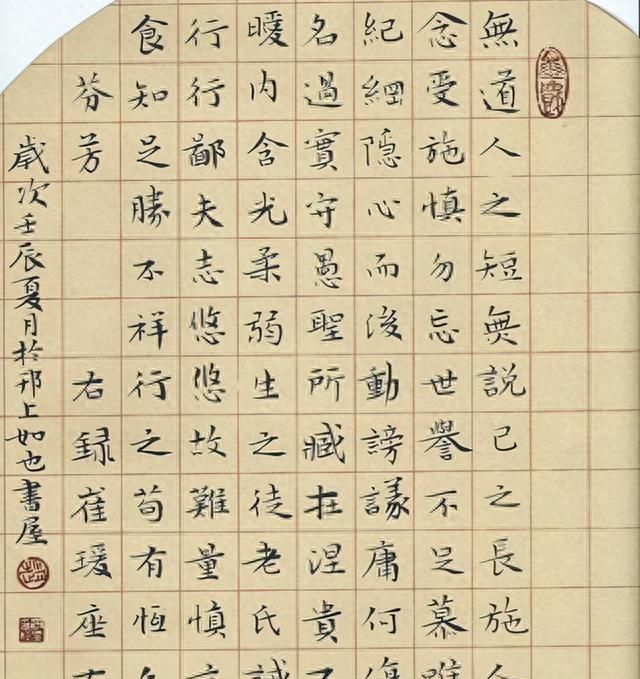 無道人之短無說己之長施人
念受施慎勿忘世譽不足慕唯
紀綱隱心而後動謗議庸何傷
名過實守愚聖所臧在涅貴不
曖內含光柔弱生之徒老氏誡
行行鄙夫志悠悠故難量慎言
食知足勝不祥行之苟有恆久
芬芳 右録崔瑗座右
歲次壬辰夏月於邗上如也書屋